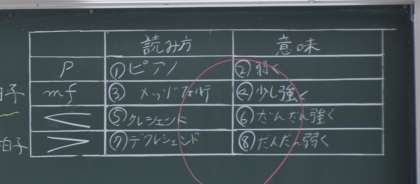 読み方 意味
P ①ピアノ ②弱く
mf ③メッゾフォルテ ④少し強く
拍子
＜ ⑤クレシェンド ⑥だんだん強く
＞ ⑦デクレシェンド ⑧だんだん弱く
拍子